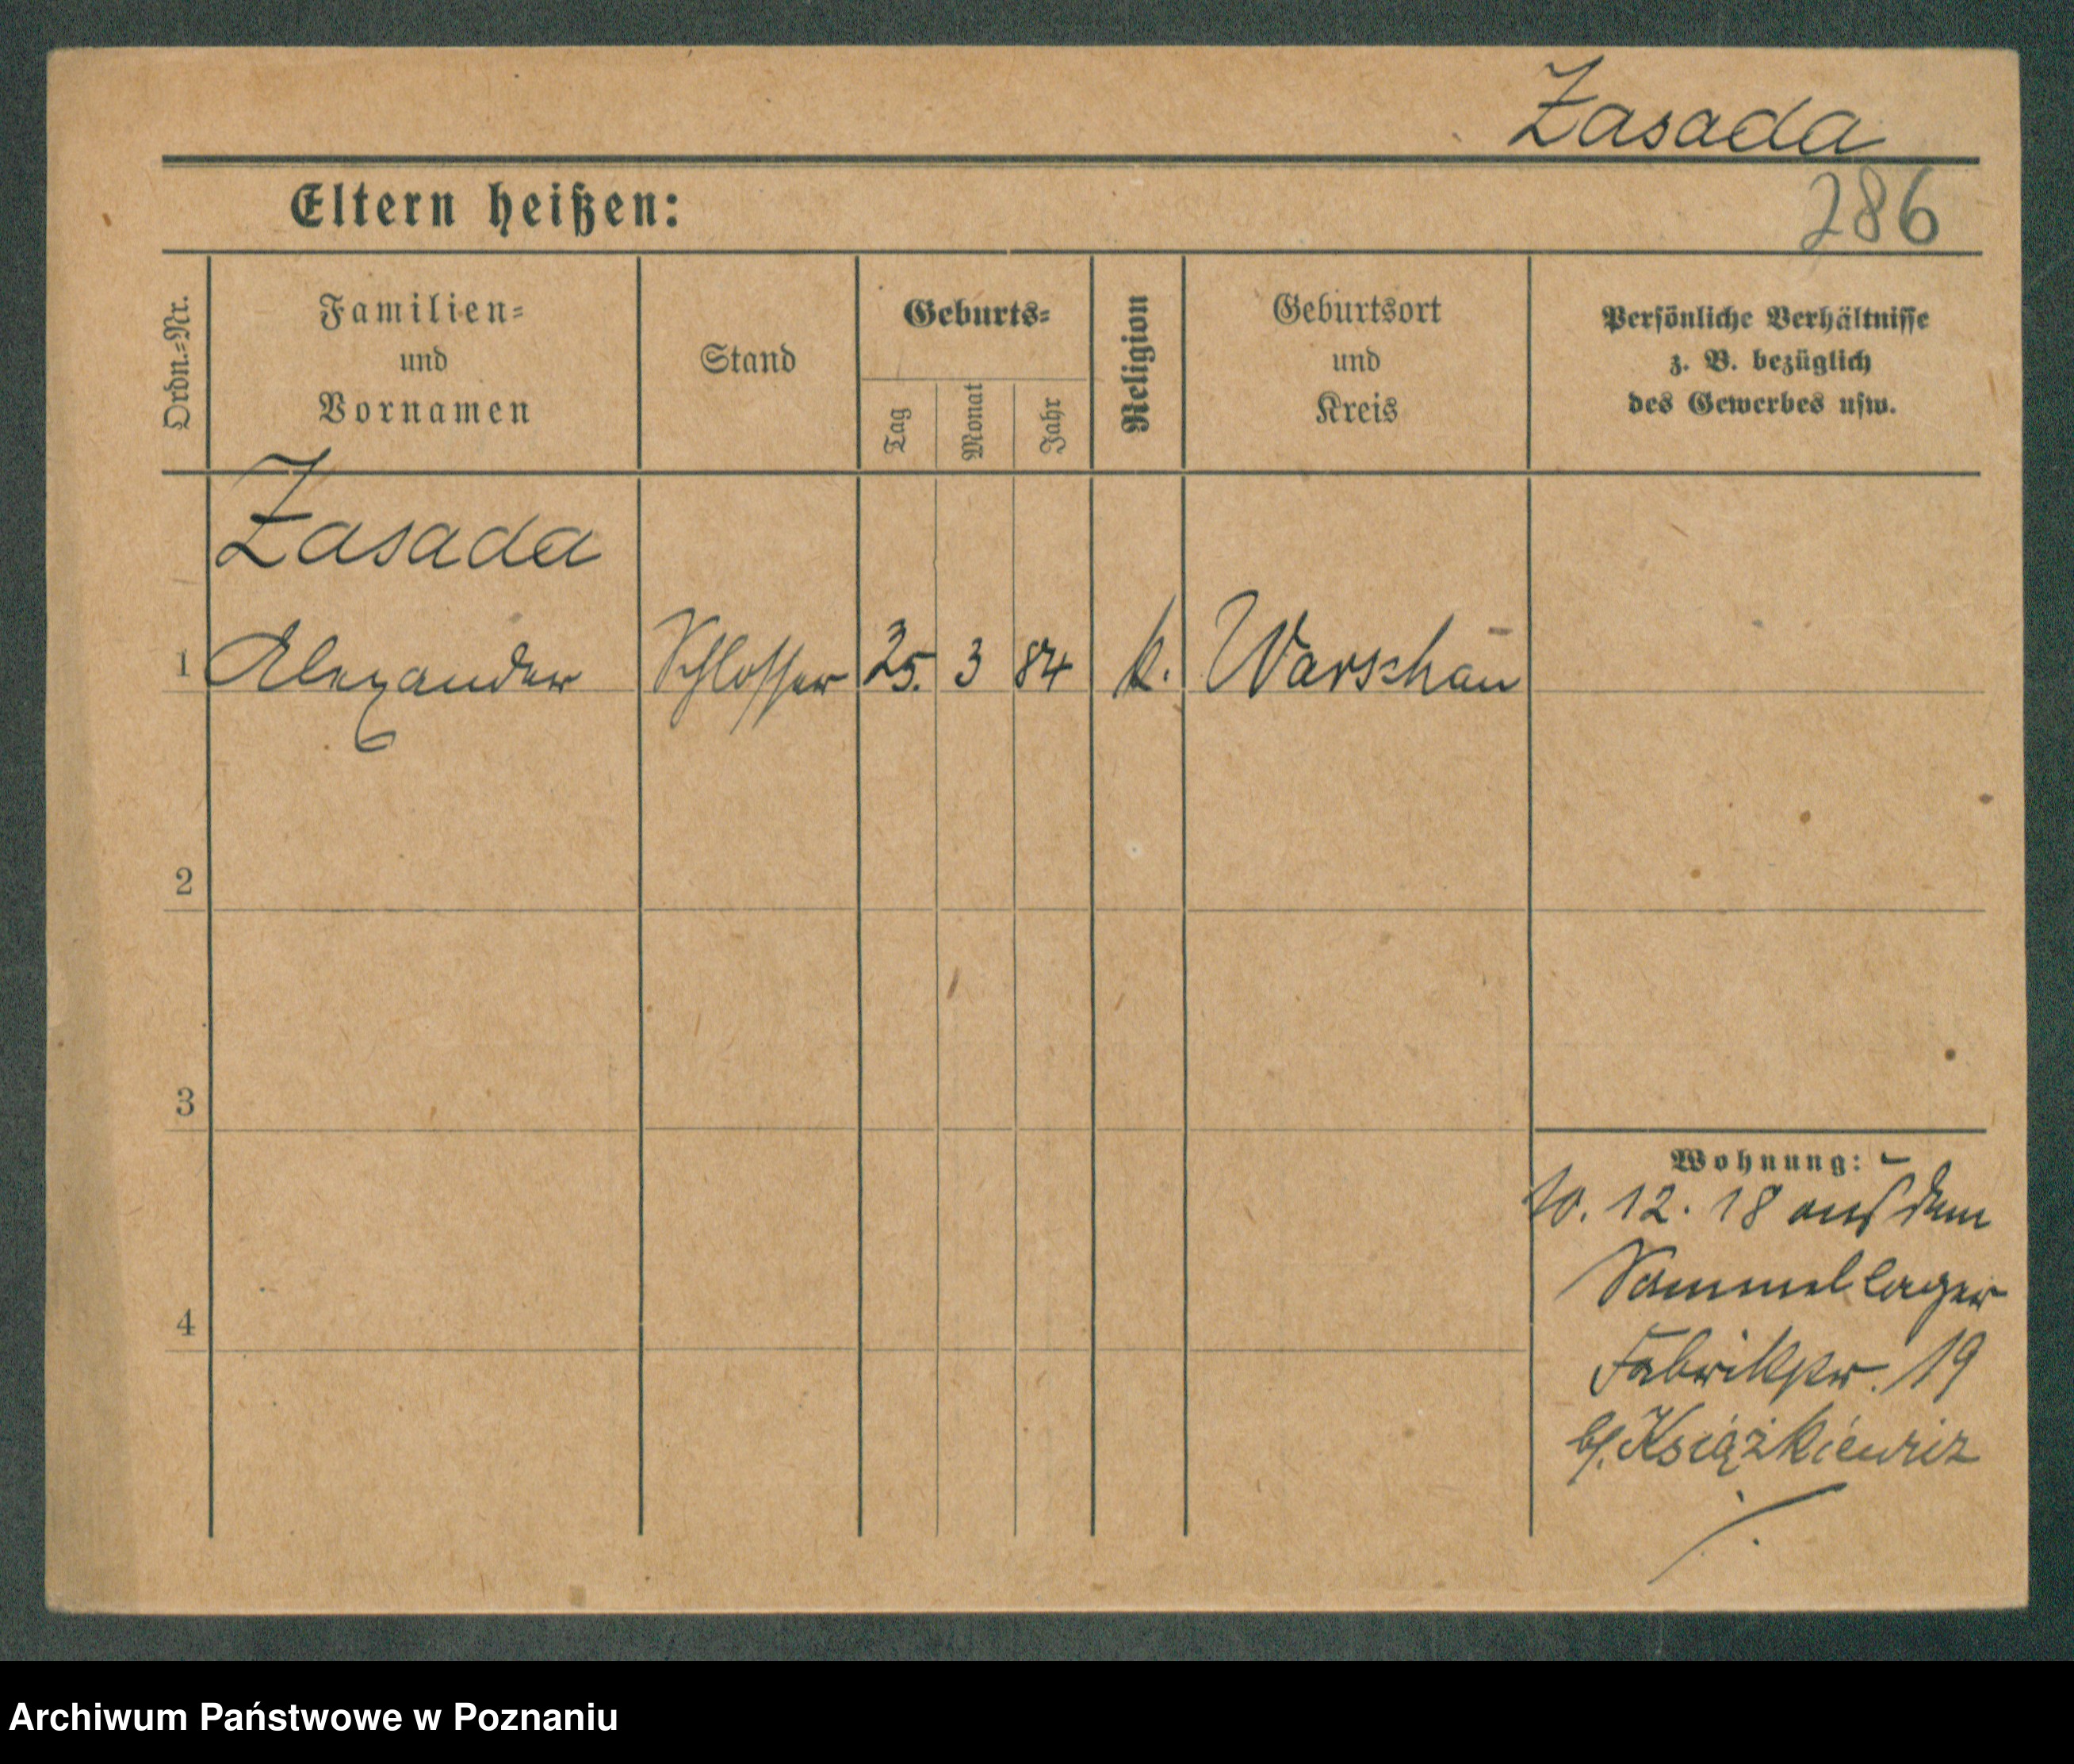 Zasada
Eltern heißen:
286
Ordn.=Nr.
Familien=
und
Vornamen
Stand
Geburts=
Tag
Monat
Jahr
Religion
Geburtsort
und
Kreis
Persönliche Verhältnisse
z. B. bezüglich
des Gewerbes usw.
Zasada
1 Alexander Schlosser 25. 3 84 k. Warschau
2
3
4
Wohnung:
10. 12. 18 aus dem
Sammellager
19
b/. Książkiewicz
Archiwum Państwowe w Poznaniu